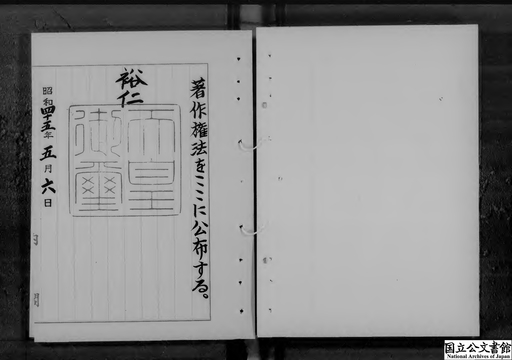 著作権法をここに公布する。
裕仁
天皇
御璽
昭和四十五年五月六日
国立公文書館
National Archives of Japan